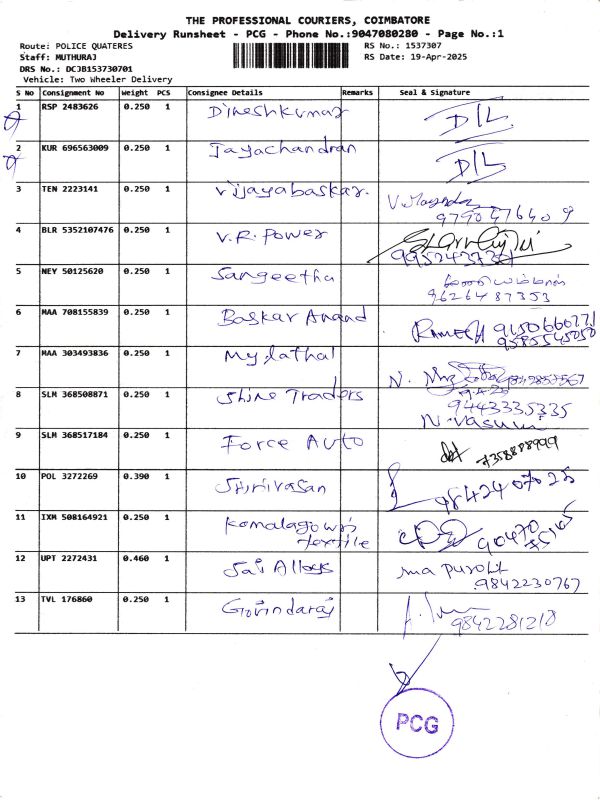 THE PROFESSIONAL COURIERS, COIMBATORE
Delivery Runsheet - PCG - Phone No.:9047080280 - Page No.:1
Route: POLICE QUATERES
RS No.: 1537307
Staff: MUTHURAJ
RS Date: 19-Apr-2025
DRS No.: DCJB153730701
Vehicle: Two Wheeler Delivery
S No Consignment No Weight PCS Consignee Details Remarks Seal & Signature
1 RSP 2483626 0.250 1 Dineshkumar D/L
2 KUR 696563009 0.250 1 Jayachandran D/L
3 TEN 2223141 0.250 1 Vijayabaskar.
9790476409
4 BLR 5352107476 0.250 1 V.R. Power
5 NEY 50125620 0.250 1 Sangeetha
9626487353
6 MAA 708155839 0.250 1 Baskar Anand RAMESH
7 MAA 303493836 0.250 1 Mylathal N.
8 SLM 368508871 0.250 1 Shine Traders 9443335335
N. Vasuki
9 SLM 368517184 0.250 1 Force Auto 7358888999
10 POL 3272269 0.390 1 Srinivasan 9842407025
11 IXM 508164921 0.250 1 Komalagowri
textile 90470
75165
12 UPT 2272431 0.460 1 Sai Alloys
9842230767
13 TVL 176860 0.250 1 Govindaraj
9842281218
PCG